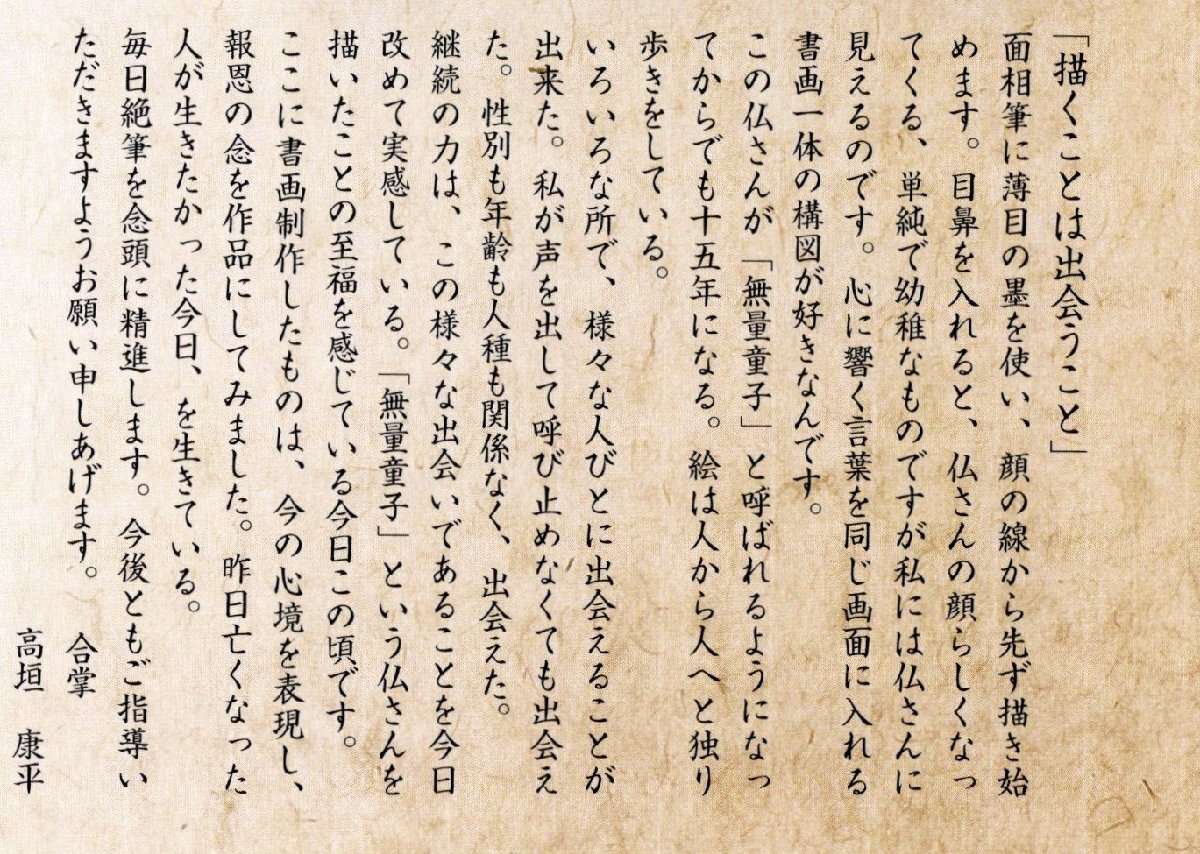 「描くことは出会うこと」
面相筆に薄目の墨を使い、顔の線から先ず描き始
めます。目鼻を入れると、仏さんの顔らしくなっ
てくる、単純で幼稚なものですが私には仏さんに
見えるのです。心に響く言葉を同じ画面に入れる
書画一体の構図が好きなんです。
この仏さんが「無量童子」と呼ばれるようになっ
てからでも十五年になる。絵は人から人へと独り
歩きをしている。
いろいろな所で、様々な人びとに出会えることが
出来た。私が声を出して呼び止めなくても出会え
た。性別も年齢も人種も関係なく、出会えた。
継続の力は、この様々な出会いであることを今日
改めて実感している。「無量童子」という仏さんを
描いたことの至福を感じている今日この頃です。
ここに書画制作したものは、今の心境を表現し、
報恩の念を作品にしてみました。昨日亡くなった
人が生きたかった今日、を生きている。
毎日絶筆を念頭に精進します。今後ともご指導い
ただきますようお願い申しあげます。 合掌
高垣 康平